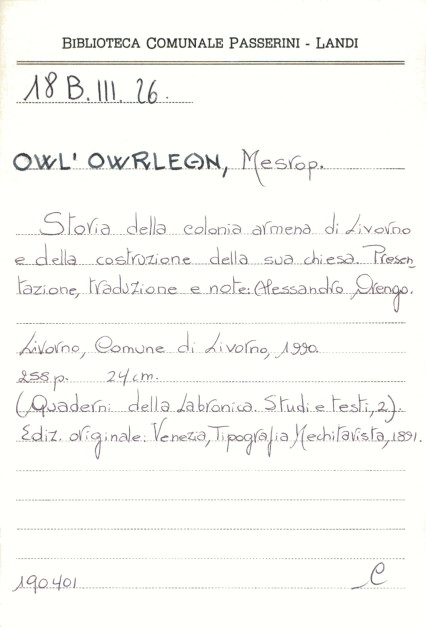 BIBLIOTECA COMUNALE PASSERINI - LANDI
18 B. III. 26.
OWL' OWRLEAN, Mesrop.
Storia della colonia armena di Livorno
e della costruzione della sua chiesa. Presen
tazione, traduzione e note: Alessandro Orengo.
Livorno, Comune di Livorno, 1990.
258 p. 24 cm.
(Quaderni della Labronica. Studi e testi, 2).
Ediz. originale: Venezia, Tipografia Mechitarista, 1891.
190.401 C